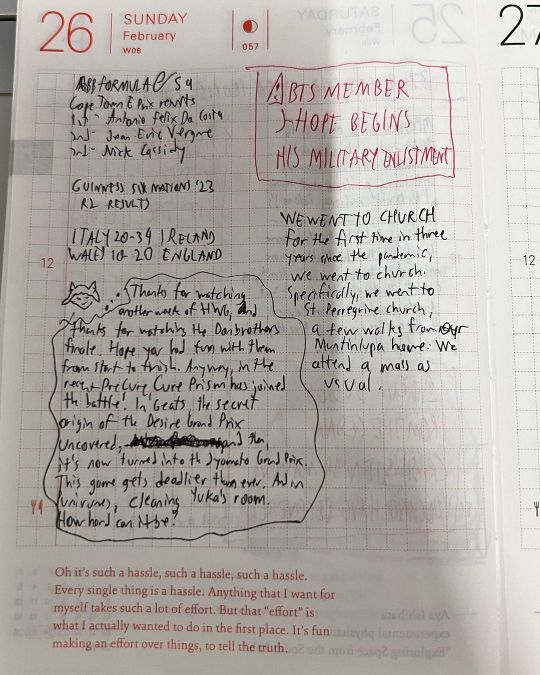 26
SUNDAY
February
W08
057
27
ABB FORMULA E S9
Cape Town E Prix results
1st - Antonio Felix Da Costa
2nd - Jean Eric Vergne
3rd - Nick Cassidy
GUINNESS SIX NATIONS '23
R2 RESULTS
ITALY 20-34 IRELAND
WALES 10-20 ENGLAND
BTS MEMBER
J-HOPE BEGINS
HIS MILITARY ENLISTMENT
WE WENT TO CHURCH
for the first time in three
years since the pandemic,
we went to church.
Specifically, we went to
St. Peregrine church,
a few walks from our
Muntinlupa home. We
attend a mass as
usual.
12
Thanks for watching
another week of HWG, and
thanks for watching the Donbrothers
finale. Hope you had fun with them
from start to finish. Anyway, in the
recent PreCure, Cure Prism has joined
the battle! In Geats the secret
origin of the Desire Grand Prix
uncovered, and then,
it's now turned into the Jyamato Grand Prix.
This game gets deadlier than ever. And in
cleaning Yuka's room.
How hard can it be?
12
Oh it's such a hassle, such a hassle, such a hassle.
Every single thing is a hassle. Anything that I want for
myself takes such a lot of effort. But that "effort" is
what I actually wanted to do in the first place. It's fun
making an effort over things, to tell the truth.